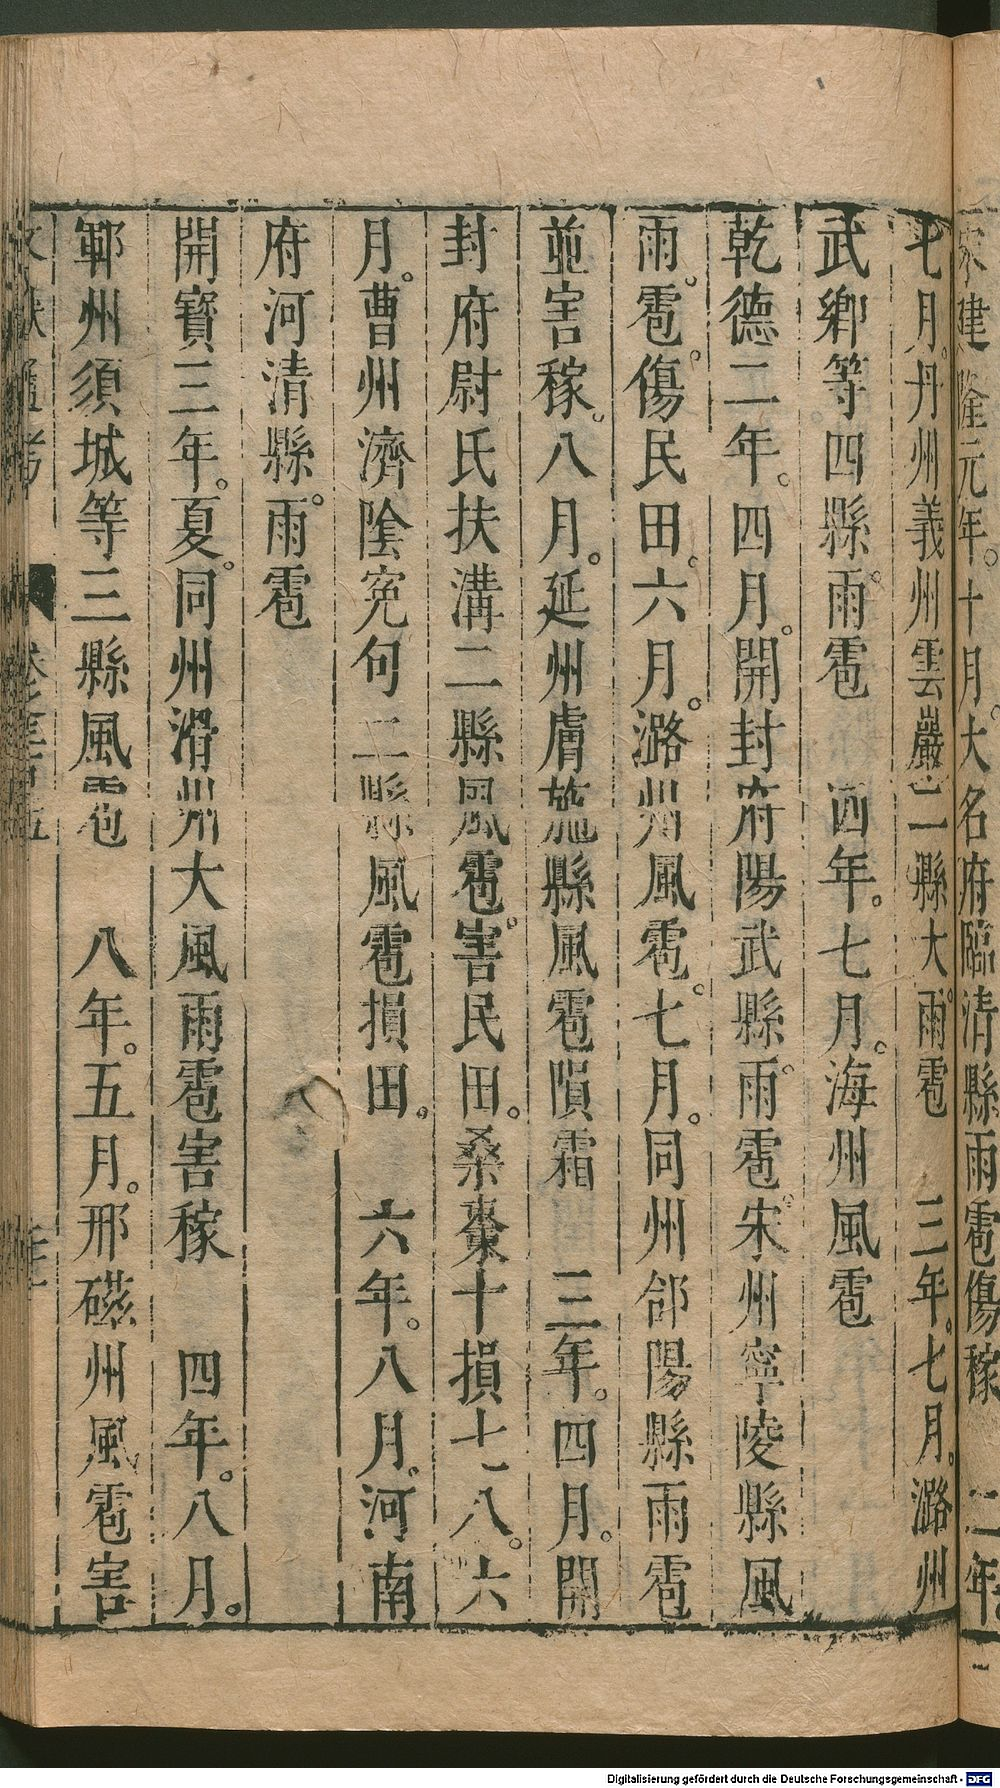 宋建隆元年。十月。大名府臨清縣雨雹傷稼 二年。
七月。丹州義州雲巖二縣大雨雹 三年。七月。潞州
武鄉等四縣雨雹 四年。七月。海州風雹
乾德二年。四月。開封府陽武縣雨雹。宋州寧陵縣風
雨。雹。傷民田。六月。潞州風雹。七月。同州郃陽縣雨雹
並害稼。八月。延州膚施縣風雹隕霜 三年。四月。開
封府尉氏扶溝二縣風雹。害民田。桑棗十損七八。六
月。曹州濟陰寃句二縣風雹損田。 六年。八月。河南
府河清縣。雨雹
開寶三年。夏。同州滑州大風雨雹害稼 四年。八月。
鄆州須城等三縣風雹 八年。五月。邢磁州風雹害
文獻通考
Digitalisierung gefördert durch die Deutsche Forschungsgemeinschaft - DFG